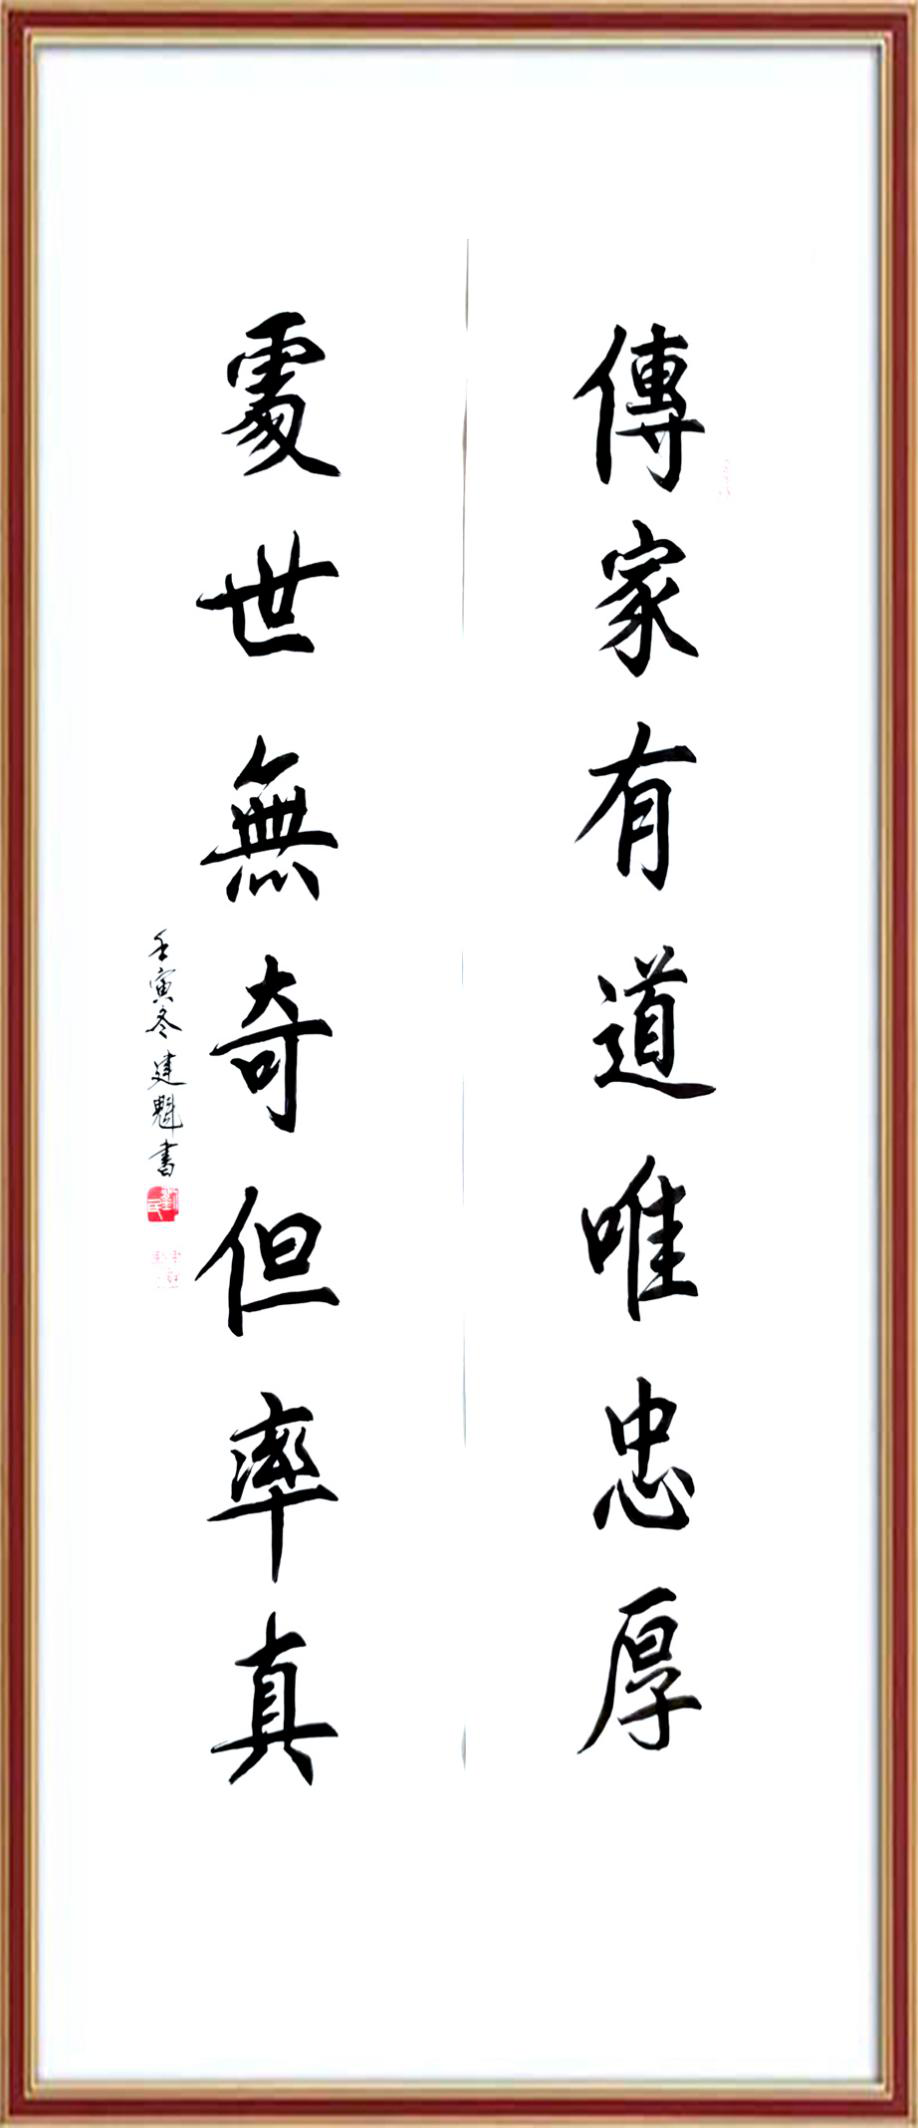 傳家有道唯忠厚
處世無奇但率真
壬寅冬建魁書
劉氏